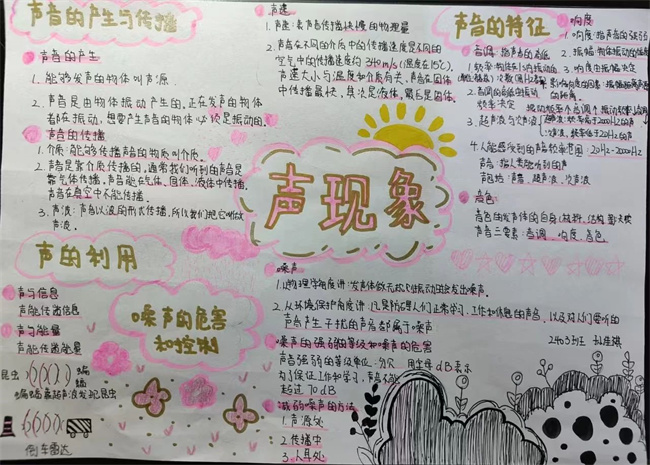 声音的产生与传播
声音的产生
1. 能够发声的物体叫声源.
2. 声音是由物体振动产生的. 正在发声的物体
都在振动. 想要产生声音的物体必须是振动的.
声音的传播
1. 介质: 能够传播声音的物质叫介质.
2. 声音是靠介质传播的, 通常我们听到的声音是
靠气体传播. 声音能在气体、固体、液体中传播,
声音在真空中不能传播.
3. 声波: 声音以波的形式传播, 所以我们把它叫做
声波.
声速
1. 声速: 表示声音传播快慢的物理量
2. 声音在不同的介质中的传播速度是不同的
空气中的传播速度约 340m/s (温度在15℃).
声速大小与温度和介质有关, 声音在固体
中传播最快, 其次是液体, 最后是固体.
声音的特征
音调: 指声音的高低
1. 频率: 物体在1s内振动的
次数
2. 音调的高低由振动
频率决定
3. 超声波与次声波
超声波: 频率高于20000Hz的声
次声波: 频率低于20Hz的声
4. 人能感受到的声音频率范围: 20Hz-20000Hz
声音: 指人类能听到的声
声包括: 声音、超声波、次声波
响度
1. 响度: 指声音的强弱
2. 振幅: 物体振动的幅度
3. 响度由振幅决定
音色
声音三要素: 音调、响度、音色
声现象
声的利用
声与信息
声能传递信息
声与能量
声能传递能量
昆虫
蝙蝠
蝙蝠靠超声波发现昆虫
倒车雷达
噪声的危害
和控制
噪声
1. 从物理学角度讲: 发声体做无规则振动时会发出噪声.
2. 从环境保护角度讲: 凡是妨碍人们正常学习、工作和休息的声音, 以及对人们要听的
声音产生干扰的声音都属于噪声
噪声的强弱的等级和噪声的危害
声音强弱的等级单位: 分贝 用符号dB表示
为了保证工作和学习, 声音不能
超过70dB
减弱噪声的方法
1. 声源处
2. 传播中
3. 人耳处